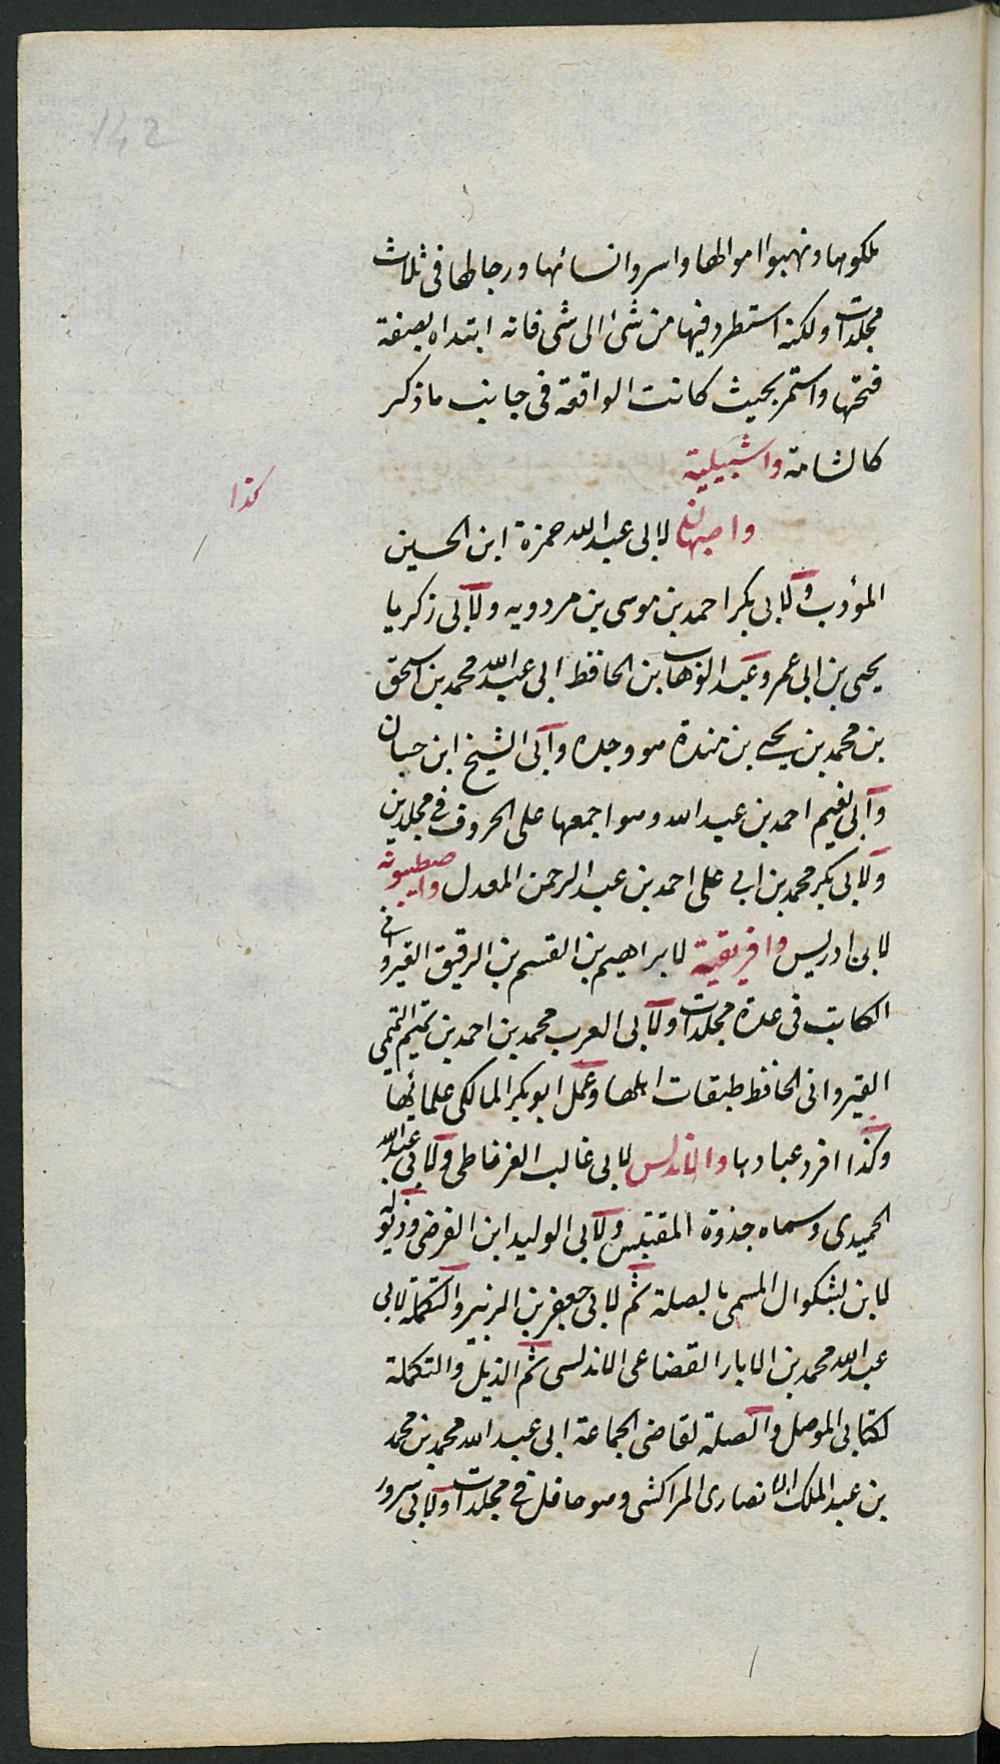 142
ملكوها ونهبوا اموالها واسروا نسائها ورجالها فى ثلاث
مجلدات ولكنه استطرد فيها من شئ الى شى فانه ابتداه بصفة
فتحها واستمر بحيث كانت الواقعة فى جانب ما ذكر
كالشامة واشبيلية
كذا
واصبهان لابى عبد الله حمزة ابن الحسين
المؤدب ولابى بكر احمد بن موسى بن مردويه ولابى زكريا
يحيى بن ابى عمرو عبد الوهاب بن الحافظ ابى عبد الله محمد بن اسحق
بن محمد بن يحيى بن مندة هو وجده وابى الشيخ ابن حبان
وابى نعيم احمد بن عبد الله وهو اجمعها على الحروف فى مجلدين
ولابى بكر محمد بن ابى على احمد بن عبد الرحمن المعدل واصطبونة
لابن ادريس وافريقية لابراهيم بن القسم بن الرقيق القيروانى
الكاتب فى عدة مجلدات ولابى العرب محمد بن احمد بن تميم التميمى
القيروانى الحافظ طبقات اهلها وعمل ابو بكر المالكى علمائها
وكذا افرد عبادها والاندلس لابى غالب الغرناطى ولابى عبد الله
الحميدى وسماه جذوة المقتبس ولابى الوليد ابن الفرضى وذيوله
لابن بشكوال المسمى بالصلة ثم لابى جعفر بن الزبير والتكملة لابى
عبد الله محمد بن الابار القضاعى الاندلسى ثم الذيل والتكملة
لكتابى الموصل والصلة لقاضى الجماعة ابى عبد الله محمد بن محمد
بن عبد الملك الانصارى المراكشى وهو حافل فى مجلدات ولابى سرور